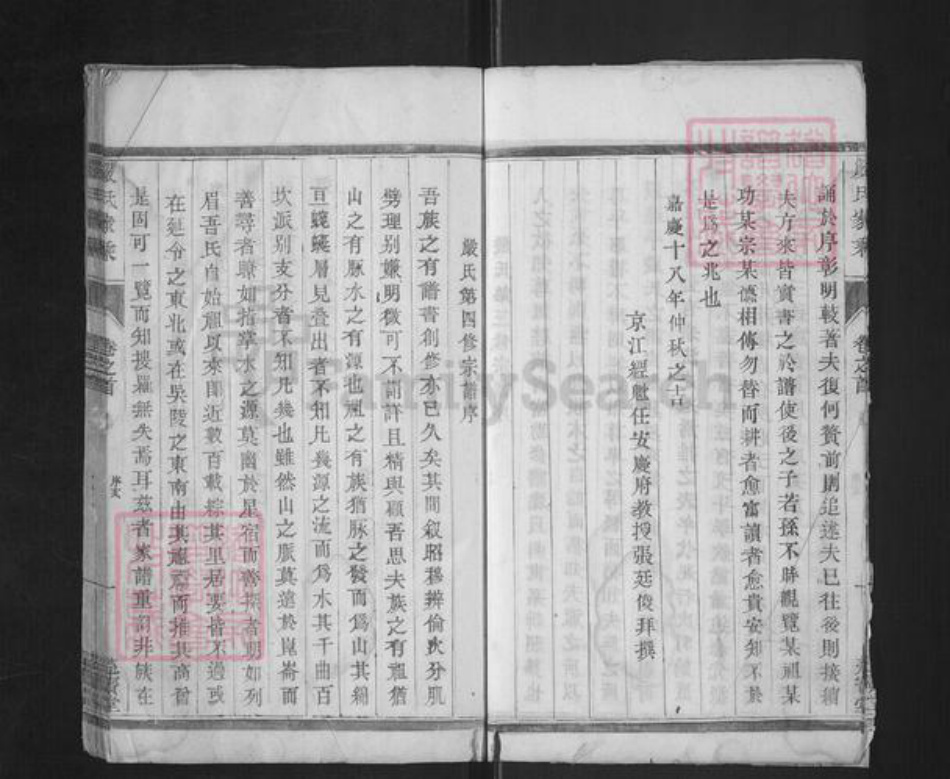 誦於序彰明較著夫復何贅前則追述夫已往後則接續
夫方來皆實書之於譜使後之子若孫不時觀覽某祖某
功某宗某德相傳勿替而耕者愈富讀者愈貴安知不於
是爲之兆也
嘉慶十八年仲秋之吉
京江經魁任安慶府教授張廷俊拜撰
嚴氏第四修宗譜序
吾族之有譜書創修亦已久矣其間叙昭穆辨倫次分肌
劈理别嫌明微可不謂詳且精與顧吾思夫族之有祖猶
山之有脉水之有源也祖之有族猶脉之發而爲山其綿
亘蜿蜒層見叠出者不知凡幾源之流而爲水其千曲百
坎派别支分者不知凡幾也雖然山之脈莫遠於崑崙而
善尋者瞭如指掌水之源莫幽於星宿而善探者朗如列
眉吾氏自始祖以來閱近數百載綜其里居要皆不過或
在延令之東北或在吳陵之東南由其遷徙而推其高曾
是固可一覽而知搜羅無失焉耳茲者家譜重訂非族在
嚴氏家乘
卷之首
序
FamilySearch